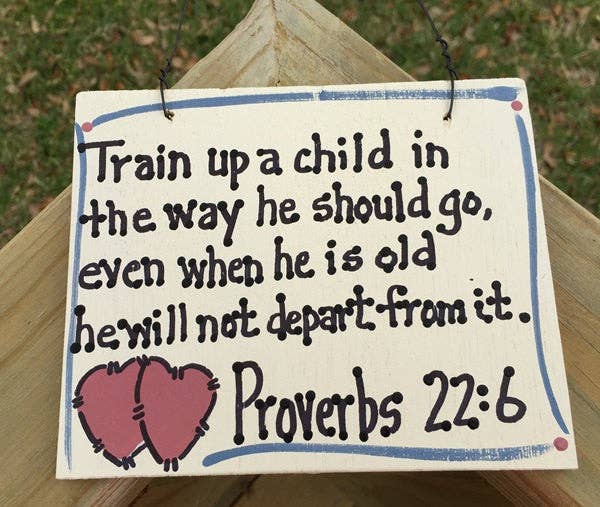 Train up a child in
the way he should go,
even when he is old
he will not depart from it.
Proverbs 22:6